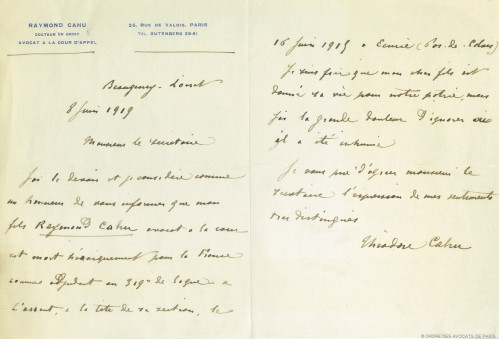 RAYMOND CAHU
DOCTEUR EN DROIT
AVOCAT A LA COUR D'APPEL
25, RUE DE VALOIS, PARIS
TÉL. GUTENBERG 29-81
Beaugency - Loiret
8 juin 1919
Monsieur le secretaire
J'ai le devoir et je considère comme
un honneur de vous informer que mon
fils Raymond Cahu avocat à la cour
est mort héroïquement pour la France
comme au 319e de ligne à
l'assaut, à la tête de sa section, le
16 juin 1915 à (Pas-de-Calais)
Je suis fier que mon cher fils ait
donné sa vie pour notre patrie, mais
j'ai la grande douleur d'ignorer où
il a été inhumé
Je vous prie d'agréer monsieur le
secretaire l'expression de mes sentiments
très distingués
Théodore Cahu
© ORDRE DES AVOCATS DE PARIS